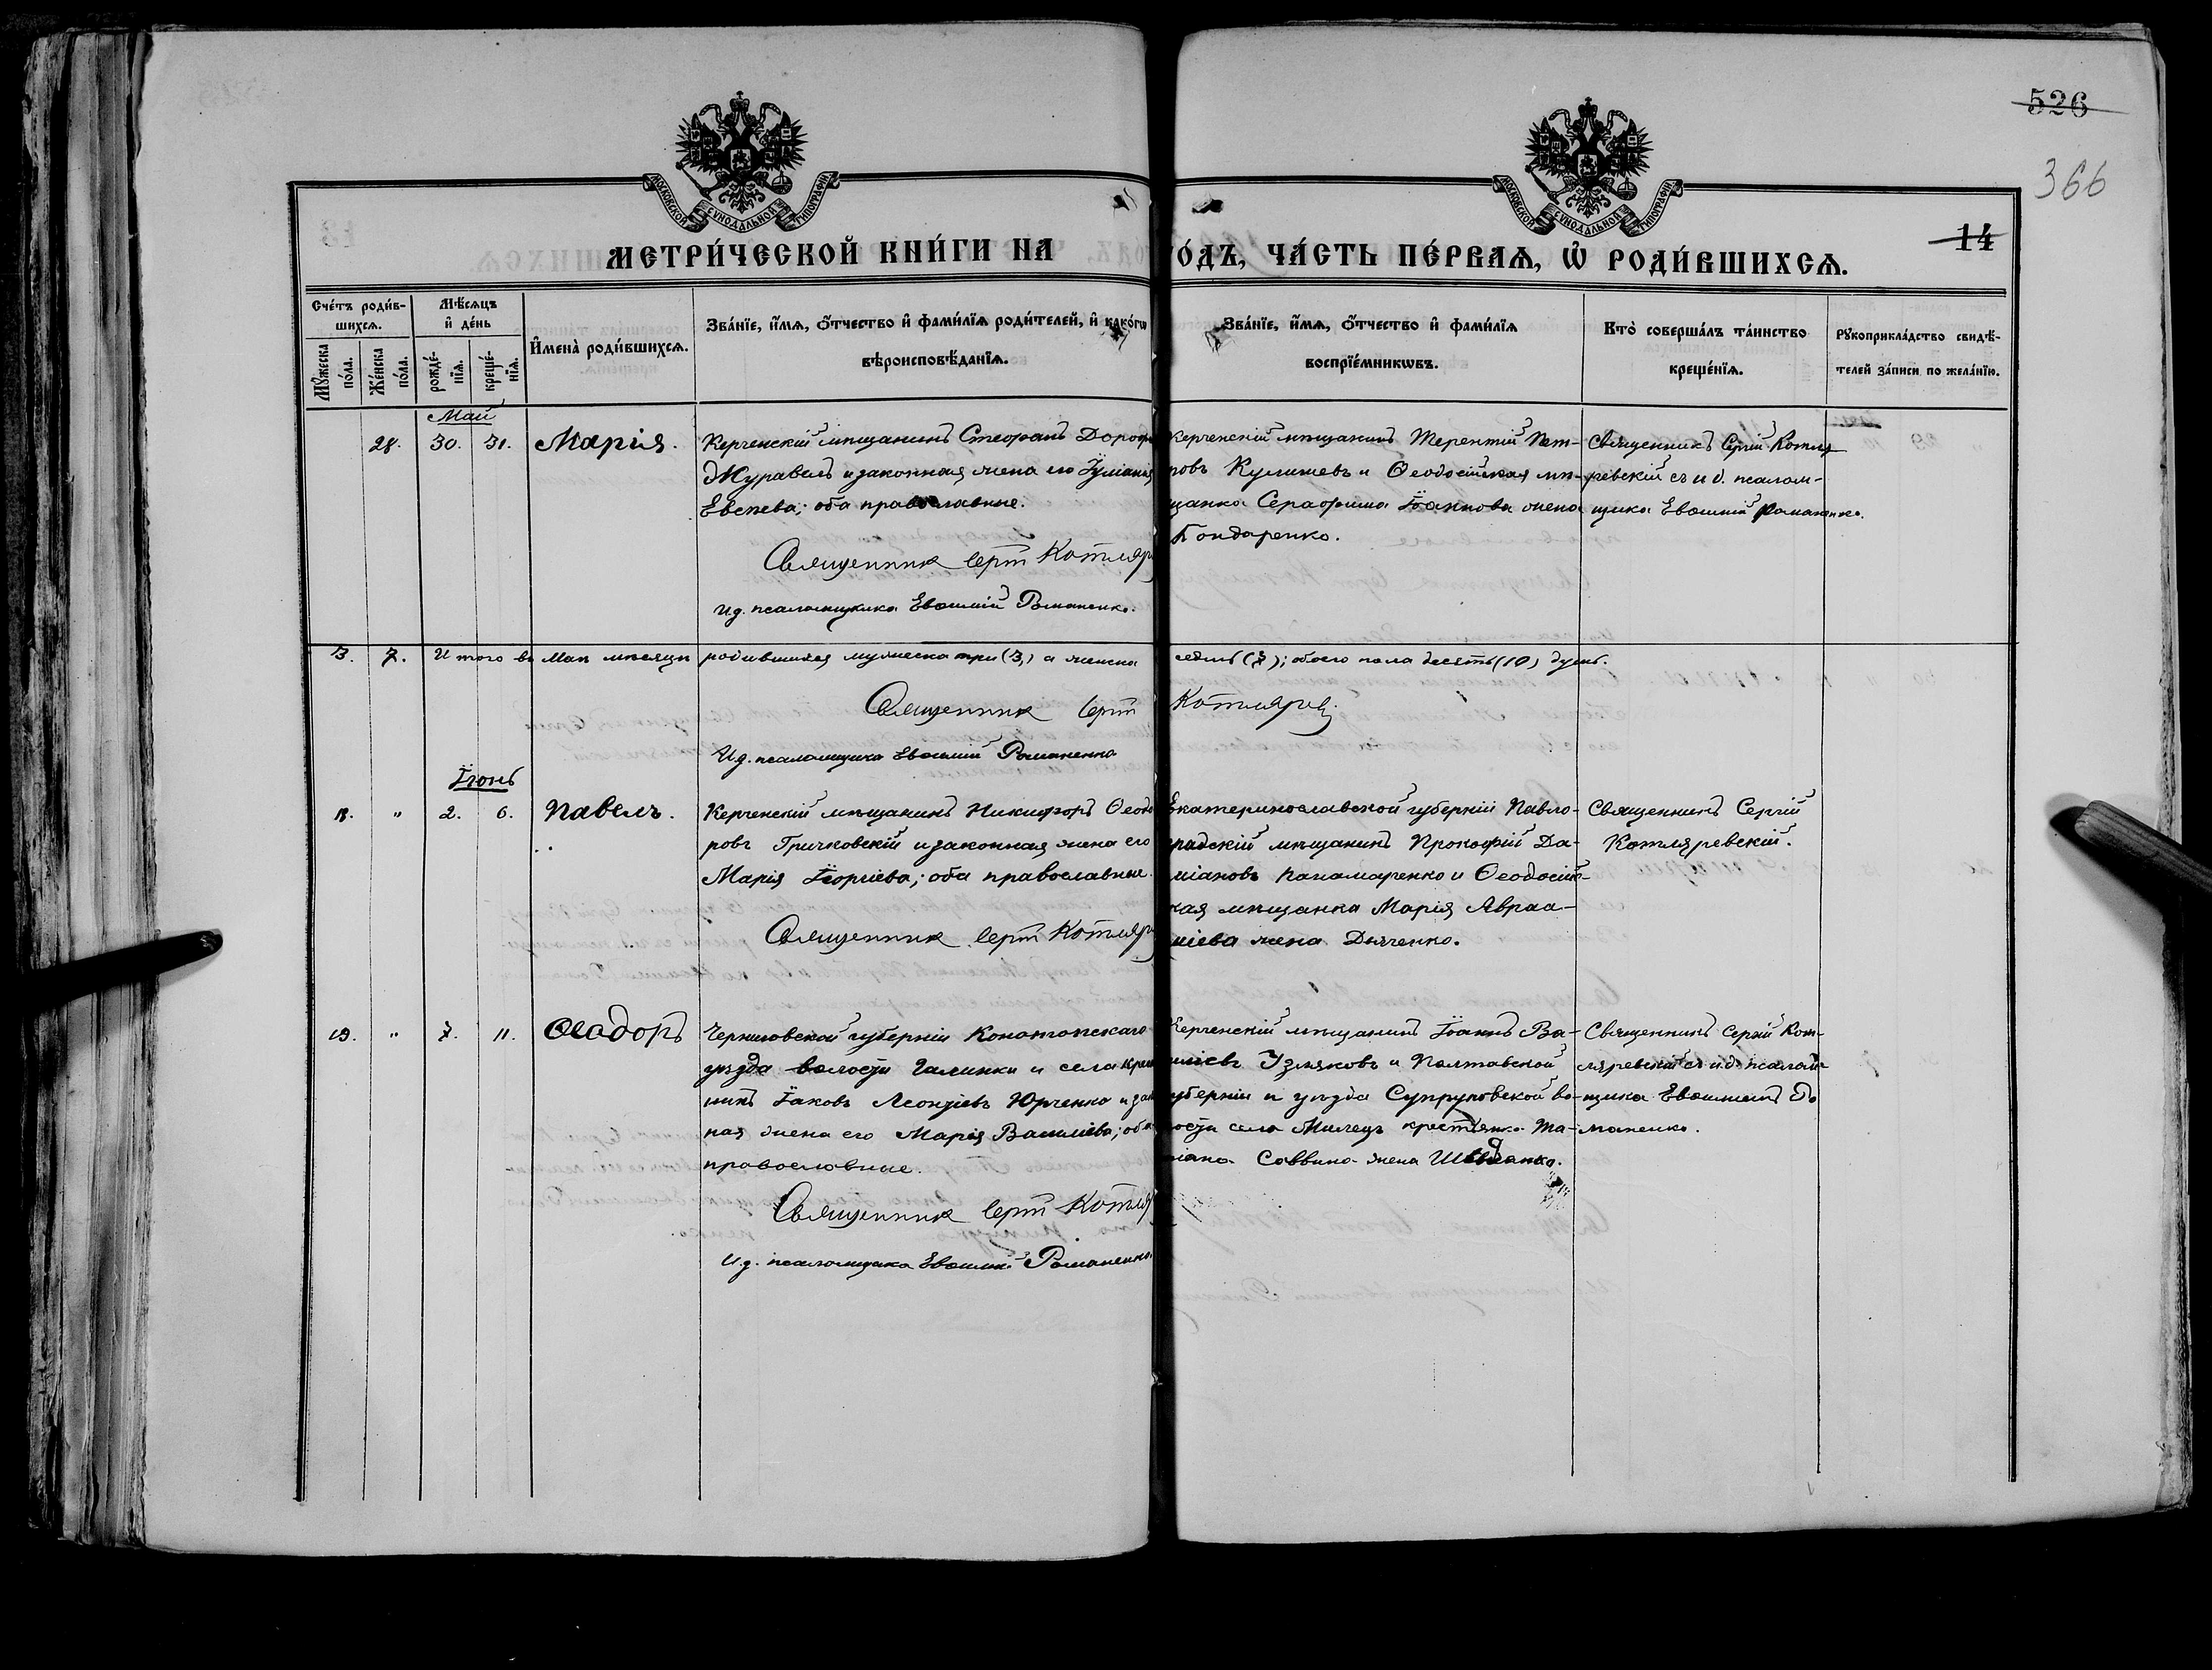 526
366
14
МОСКОВСКОЙ СѴНОДАЛЬНОЙ ТИПОГРАФІИ
МОСКОВСКОЙ СѴНОДАЛЬНОЙ ТИПОГРАФІИ
МЕТРИ́ЧЕСКОЙ КНИ́ГИ НА
ГО́ДЪ, ЧА́СТЬ ПЕ́РВАѦ, Ѡ РОДИ́ВШИХСѦ.
Сче́тъ роди́вшихся.
Мѣ́сяцъ и де́нь
Му́жеска по́ла.
Же́нска по́ла.
рожде́нїя.
креще́нїя.
И҆мена̀ роди́вшихся.
Зва́нїе, и҆́мя, ѻ҆́тчество и҆ фами́лїя роди́телей, и҆ како́гѡ
вѣроисповѣ́данїя.
Зва́нїе, и҆́мя, ѻ҆́тчество и҆ фами́лїя
воспрїе́мникѡвъ.
Кто̀ соверша́лъ та́инство
креще́нїя.
Рꙋкоприкла́дство свидѣ́-
телей за́писи по жела́нїю.
Май
28. 30. 31. Марія.
Керченскій мѣщанинъ Стефанъ Дороф
Журавель и законная жена его Іуліанія
; оба православные.
Священникъ Сергій Котляр
И.д. псаломщика Евфимій Романенко.
Керченскій мѣщанинъ Терентій Пет-
ровъ Кулишевъ и Ѳеодосійская мѣ-
щанка Серафима Іоаннова жена
Бондаренко.
Священникъ Сергій Котля-
ревскій съ и.д. псалом-
щика Евфимій Романенко.
3. 7. Итого въ Маѣ мѣсяцѣ родившихся мужеска три (3) а женска
седмь (7); обоего пола десять (10) душъ.
Священникъ Сергій Котляревскій
И.д. псаломщика Евфимій Романенко
Іюнь
18. " 2. 6. Павелъ.
Керченскій мѣщанинъ Никифоръ Ѳеодо
ровъ Гричковскій и законная жена его
Марія Георгіева; оба православные.
Священникъ Сергій Котляр
Екатеринославской губерніи Павло-
градскій мѣщанинъ Прокофій Да-
міановъ Панамаренко и Ѳеодосій-
кая мѣщанка Марія Авраа-
міева жена Дьяченко.
Священникъ Сергій
Котляревскій.
19. " 7. 11. Ѳеодоръ
Черниговской губерніи Конотопскаго
уѣзда волости Галинки и села Крес
нинъ Іаковъ Леонтіевъ Юрченко и зак
ная жена его Марія Василіева; оба
православные.
Священникъ Сергій Котля
И.д. псаломщика Евфимій Романенко.
Керченскій мѣщанинъ Іоаннъ Ва-
силіевъ Узляковъ и Полтавской
губерніи и уѣзда Супруновской во-
лости села Милецъ крестьянка Та-
тіана Саввина жена
Священникъ Сергій Кот-
ляревскій съ и.д. псалом-
щика Евфиміемъ Ро
маненко.